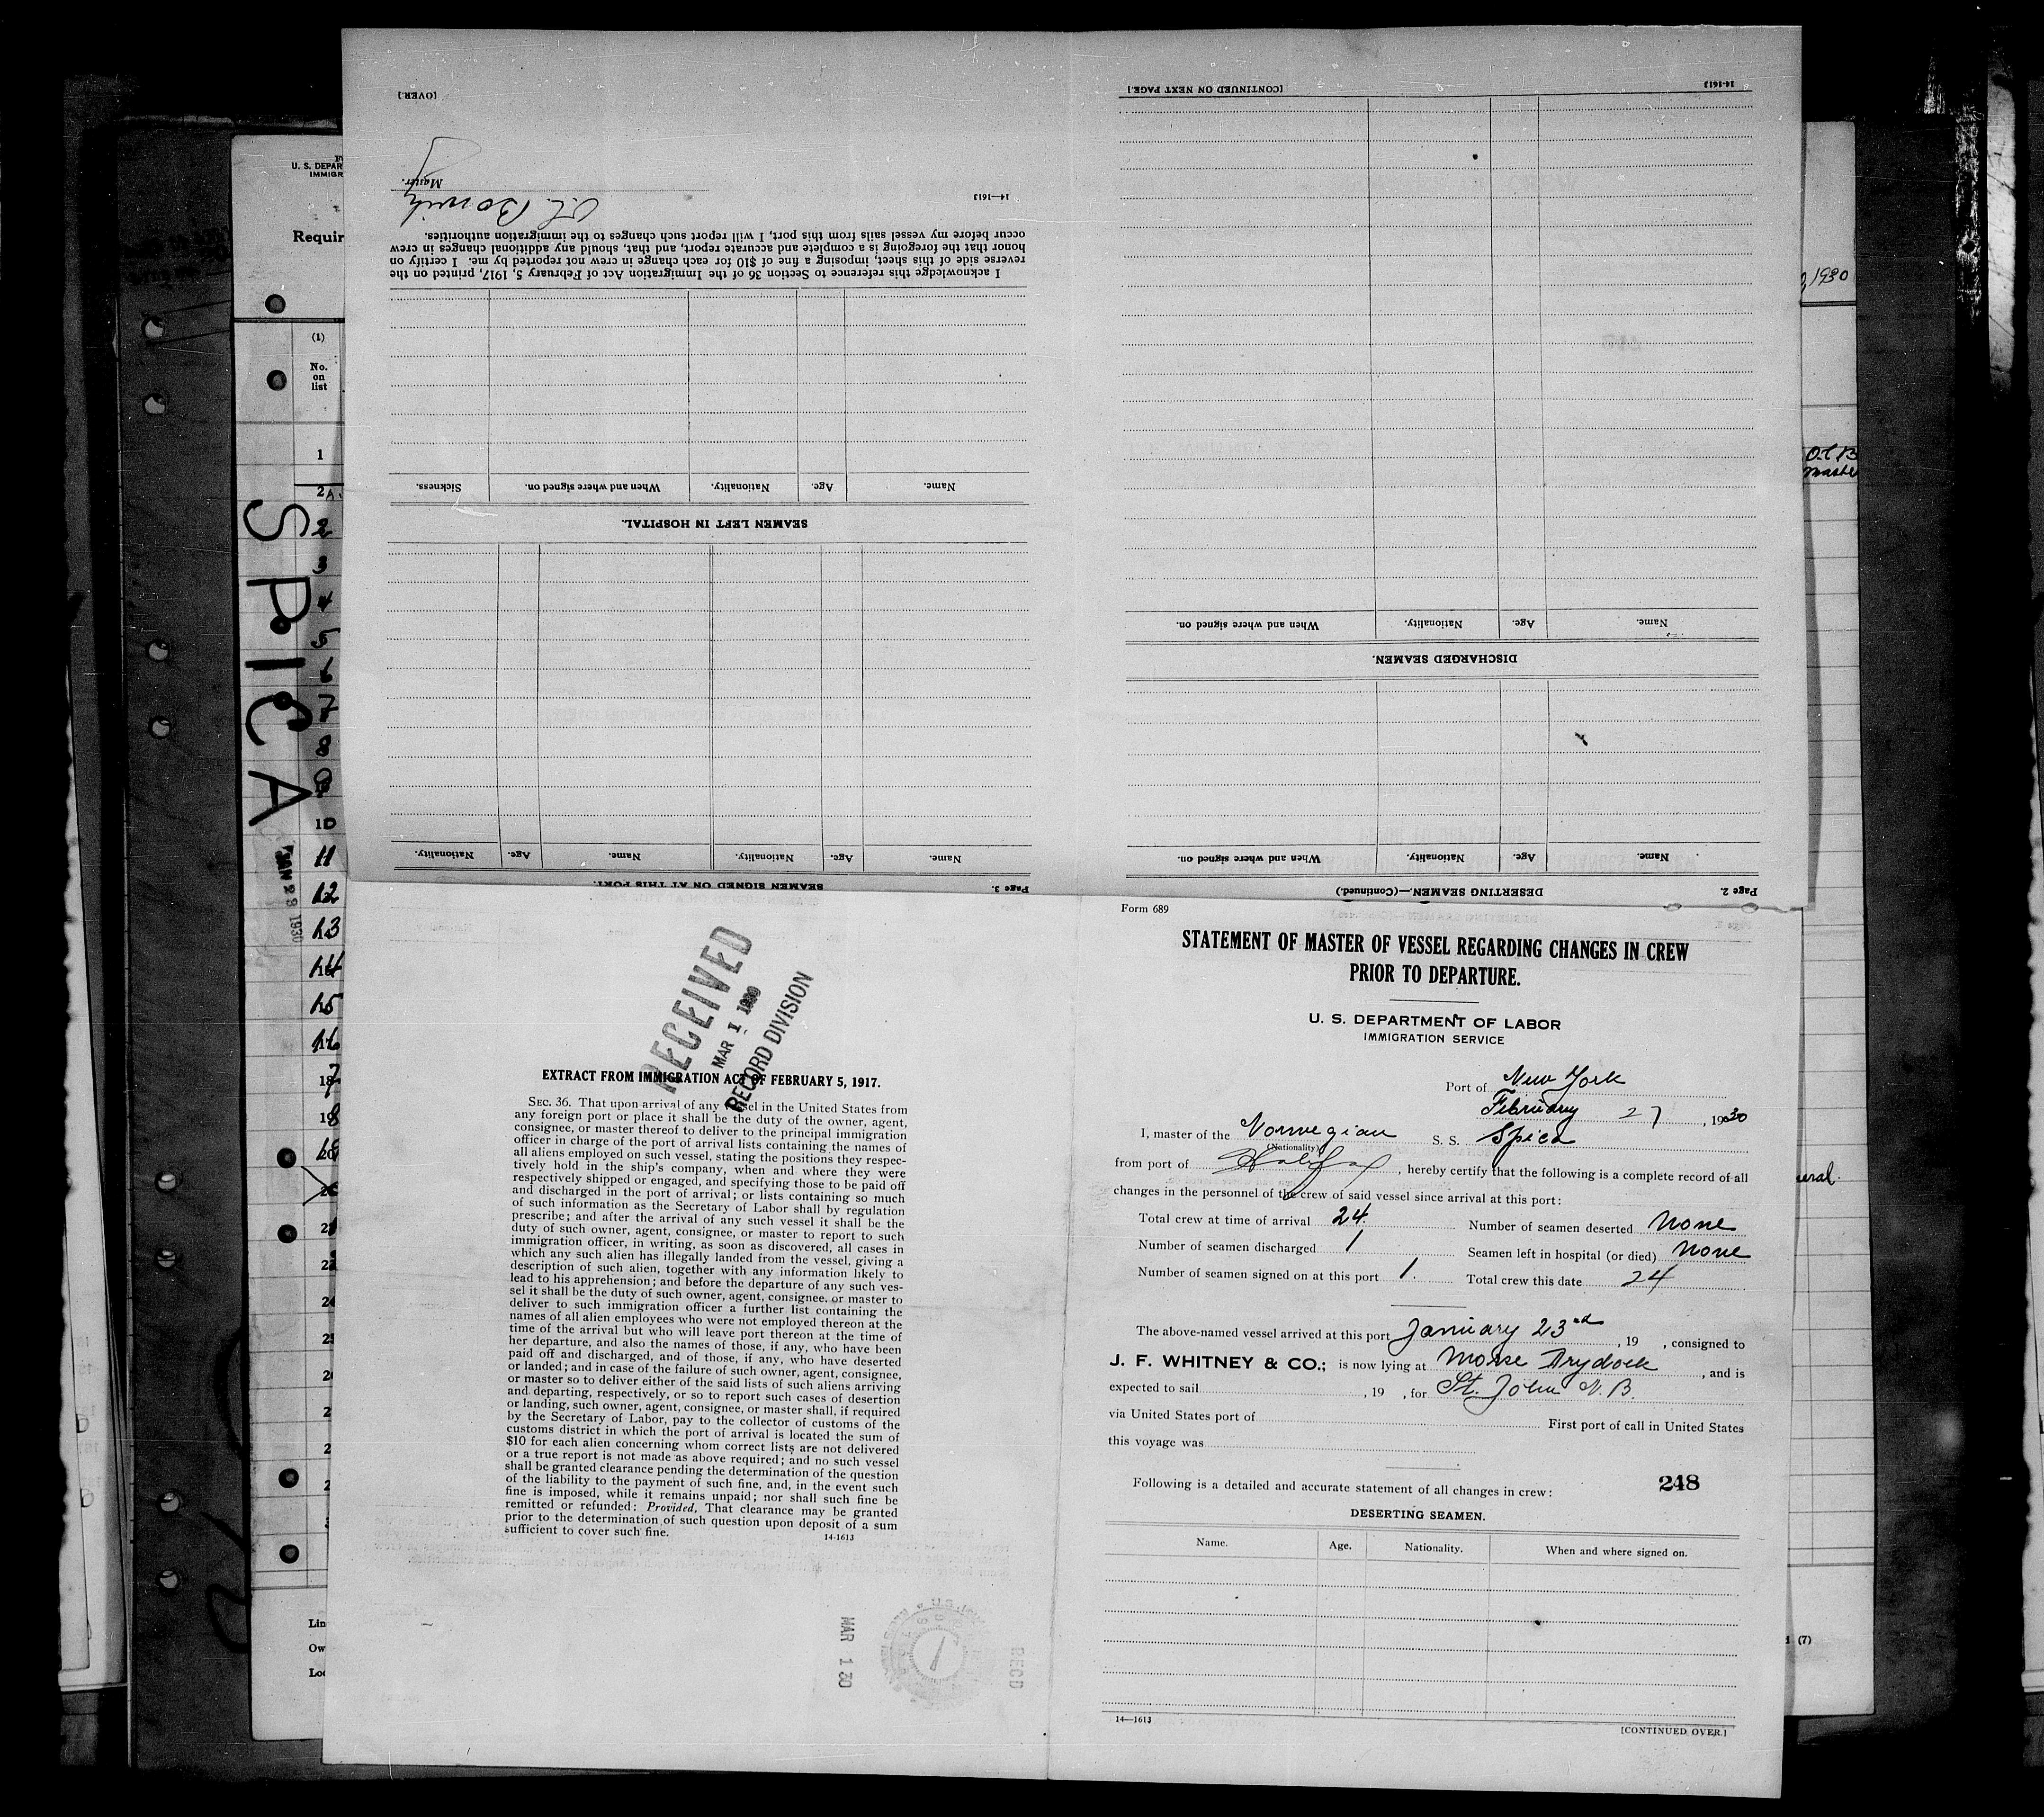 [OVER.]
Master.
14—1613
I acknowledge this reference to Section 36 of the Immigration Act of February 5, 1917, printed on the
reverse side of this sheet, imposing a fine of $10 for each change in crew not reported by me. I certify on
honor that the foregoing is a complete and accurate report, and that, should any additional changes in crew
occur before my vessel sails from this port, I will report such changes to the immigration authorities.
Name. Age. Nationality. When and where signed on. Sickness.
SEAMEN LEFT IN HOSPITAL.
Name. Age. Nationality. Name. Age. Nationality.
Page 3. SEAMEN SIGNED ON AT THIS PORT.
[CONTINUED ON NEXT PAGE.]
14-1613
Name. Age. Nationality. When and where signed on.
DISCHARGED SEAMEN.
Name. Age. Nationality. When and where signed on.
Page 2. DESERTING SEAMEN.—(Continued.)
U. S. DEPAR
IMMIGR
Requir
(1)
No.
on
list
1
2
3
4
5
6
7
8
9
10
11
12
13
14
15
16
SPICA
JAN 29 1930
Lin
Ow
Loc
, 1930
Master
(7)
RECEIVED
MAR 1 1930
RECORD DIVISION
EXTRACT FROM IMMIGRATION ACT OF FEBRUARY 5, 1917.
SEC. 36. That upon arrival of any vessel in the United States from
any foreign port or place it shall be the duty of the owner, agent,
consignee, or master thereof to deliver to the principal immigration
officer in charge of the port of arrival lists containing the names of
all aliens employed on such vessel, stating the positions they respec-
tively hold in the ship's company, when and where they were
respectively shipped or engaged, and specifying those to be paid off
and discharged in the port of arrival; or lists containing so much
of such information as the Secretary of Labor shall by regulation
prescribe; and after the arrival of any such vessel it shall be the
duty of such owner, agent, consignee, or master to report to such
immigration officer, in writing, as soon as discovered, all cases in
which any such alien has illegally landed from the vessel, giving a
description of such alien, together with any information likely to
lead to his apprehension; and before the departure of any such ves-
sel it shall be the duty of such owner, agent, consignee, or master to
deliver to such immigration officer a further list containing the
names of all alien employees who were not employed thereon at the
time of the arrival but who will leave port thereon at the time of
her departure, and also the names of those, if any, who have been
paid off and discharged, and of those, if any, who have deserted
or landed; and in case of the failure of such owner, agent, consignee,
or master so to deliver either of the said lists of such aliens arriving
and departing, respectively, or so to report such cases of desertion
or landing, such owner, agent, consignee, or master shall, if required
by the Secretary of Labor, pay to the collector of customs of the
customs district in which the port of arrival is located the sum of
$10 for each alien concerning whom correct lists are not delivered
or a true report is not made as above required; and no such vessel
shall be granted clearance pending the determination of the question
of the liability to the payment of such fine, and, in the event such
fine is imposed, while it remains unpaid; nor shall such fine be
remitted or refunded: Provided, That clearance may be granted
prior to the determination of such question upon deposit of a sum
sufficient to cover such fine.
14-1613
MAR 1 30
REC'D
Form 689
STATEMENT OF MASTER OF VESSEL REGARDING CHANGES IN CREW
PRIOR TO DEPARTURE.
U. S. DEPARTMENT OF LABOR
IMMIGRATION SERVICE
Port of New York
February 27, 1930
I, master of the Norwegian S. S. Spica
(Nationality)
from port of Halifax, hereby certify that the following is a complete record of all
changes in the personnel of the crew of said vessel since arrival at this port:
Total crew at time of arrival 24 Number of seamen deserted None
Number of seamen discharged 1 Seamen left in hospital (or died) None
Number of seamen signed on at this port 1. Total crew this date 24
The above-named vessel arrived at this port January 23rd, 19 , consigned to
J. F. WHITNEY & CO.; is now lying at Morse Drydock, and is
expected to sail , 19 , for St. John N. B.
via United States port of First port of call in United States
this voyage was
Following is a detailed and accurate statement of all changes in crew:
248
DESERTING SEAMEN.
Name. Age. Nationality. When and where signed on.
14—1613
[CONTINUED OVER.]